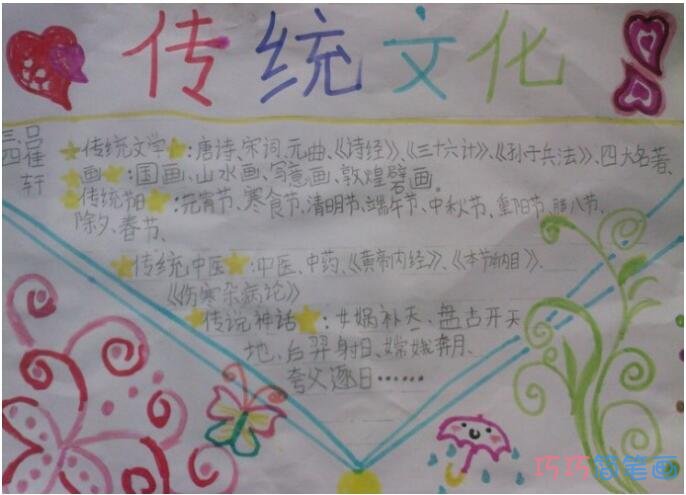 传统文化
三四
吕崔轩
传统文学：唐诗、宋词、元曲、《诗经》、《三十六计》、《孙子兵法》、四大名著、
画：国画、山水画、写意画、敦煌壁画。
传统节日：元宵节、寒食节、清明节、端午节、中秋节、重阳节、腊八节、
除夕、春节、
传统中医：中医、中药、《黄帝内经》、《本节纲目》、
《伤寒杂病论》
传说神话：女娲补天、盘古开天
地、后羿射日、嫦娥奔月、
夸父逐日……
巧巧简笔画